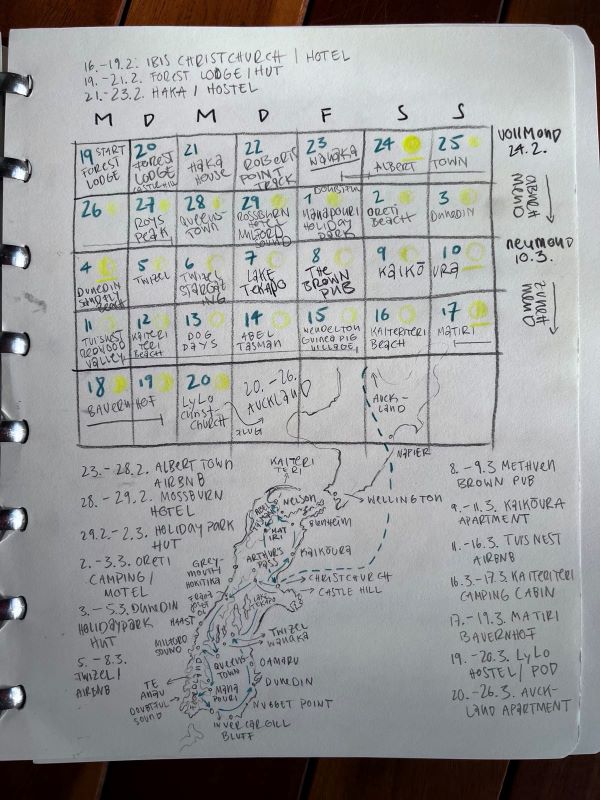 16.-19.2. IBIS CHRISTCHURCH / HOTEL
19.-21.2. FOREST LODGE / HUT
21.-23.2. HAKA / HOSTEL
M D M D F S S
19 START FOREST LODGE
20 FOREST LODGE CASTLE HILL
21 HAKA HOUSE
22 ROBERTS POINT TRACK
23 WANAKA
24 ALBERT
25 TOWN
VOLLMOND
24.2.
26
27 ROYS PEAK
28 QUEENS-TOWN
29 MILFORD SOUND
1 MANAPOURI HOLIDAY PARK
2 ORETI BEACH
3 DUNEDIN
ABNEH MEND
NEUMOND
10.3.
4 DUNEDIN SANDFLY BEACH
5 TWIZEL
6 TWIZEL STARGAZING
7 LAKE TEKAPO
8 THE BROWN PUB
9 KAIKŌ
10 URA
ZUNEH MEND
11 TUISNEST REDWOOD VALLEY
12 KAITERI TERI BEACH
13 DOG DAYS
14 ABEL TASMAN
15 GUINEA PIG VILLAGE
16 KAITERITERI BEACH
17 MATIRI
18 BAUERN
19 HOF
20 LYLO CHRIST-CHURCH
FLUG
20.-26. AUCKLAND
AUCK-
LAND
NAPIER
23.-28.2. ALBERT TOWN
AIRBNB
28.-29.2. MOSSBURN
HOTEL
29.2.-2.3. HOLIDAY PARK
HUT
2.-3.3. ORETI
CAMPING /
MOTEL
3.-5.3. DUNEDIN
HOLIDAYPARK
HUT
5.-8.3.
TWIZEL /
AIRBNB
KAITERI
TERI
NELSON
WELLINGTON
BLENHEIM
MATIRI
KAIKOURA
ARTHUR'S
PASS
GREY-
MOUTH
HOKITIKA
CHRISTCHURCH
CASTLE HILL
FRANZ
JOSEF
LAKE
TEKAPO
HAAST
TWIZEL
WANAKA
MILFORD
SOUND
QUEENS-
TOWN
OAMARU
TE
ANAU
FJORDLAND
MANA
POURI
DUNEDIN
DOUBTFUL
SOUND
NUGGET POINT
INVERCARGILL
BLUFF
8.-9.3 METHVEN
BROWN PUB
9.-11.3. KAIKŌURA
APARTMENT
11.-16.3. TUISNEST
AIRBNB
16.3.-17.3. KAITERITERI
CAMPING CABIN
17.-19.3. MATIRI
BAUERNHOF
19.-20.3. LYLO
HOSTEL / POD
20.-26.3. AUCK-
LAND APARTMENT